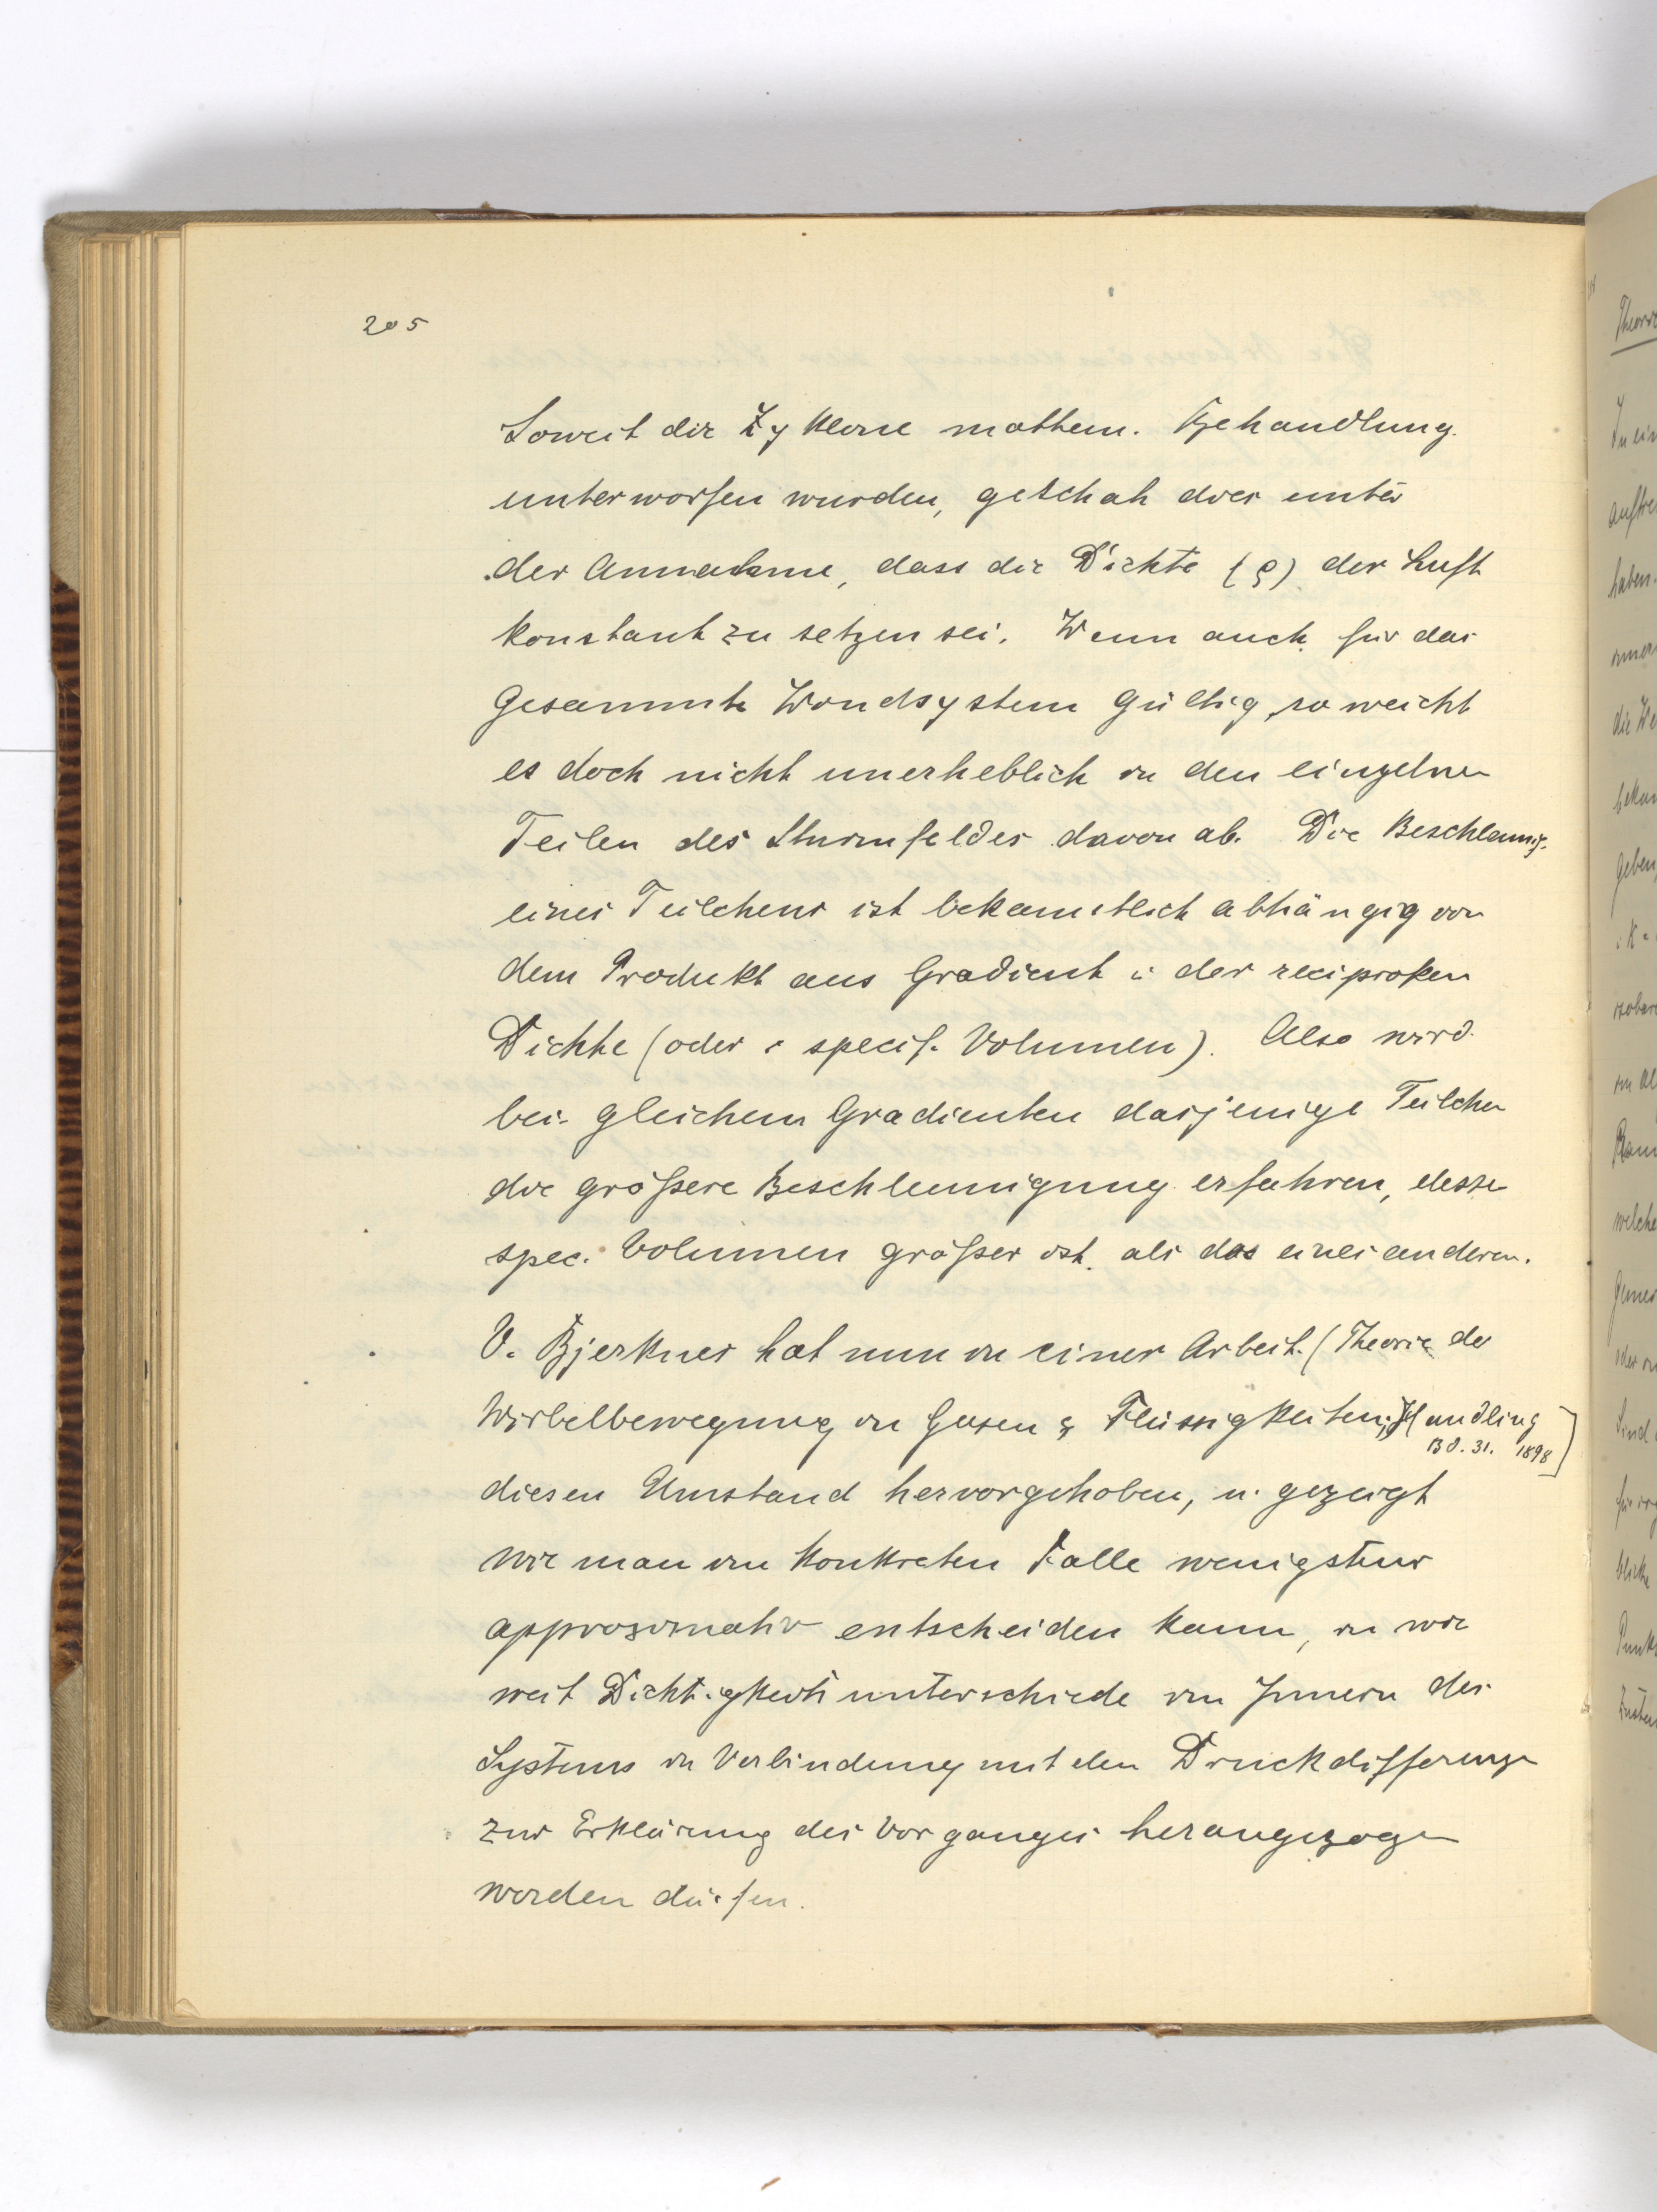 205
Soweit die Zyklone mathem. Behandlung
unterworfen wurden, geschah dies unter
der Annahme, dass die Dichte (ρ) der Luft
konstant zu setzen sei. Wenn auch für das
Gesammte Windsystem gültig, so weicht
es doch nicht unerheblich in den einzelnen
Teilen des Sturmfeldes davon ab. Die Beschleunig.
eines Teilchens ist bekanntlich abhängig von
dem Produkt aus Gradient u. der reciproken
Dichte (oder specif. Volumen). Also wird
bei gleichem Gradienten dasjenige Teilchen
die größere Beschleunigung erfahren, dessen
spec. Volumen größer ist als das eines anderen.
V. Bjerknes hat nun in einer Arbeit (Theorie der
Wirbelbewegung in Gasen & Flüssigkeiten, Handling
Bd. 31. 1898
diesen Umstand hervorgehoben, u. gezeigt
wie man im konkreten Falle wenigstens
approximativ entscheiden kann, in wie
weit Dichtigkeitsunterschiede im Innern des
Systems in Verbindung mit den Druckdifferenzen
zur Erklärung des Vorganges herangezogen
werden dürfen.